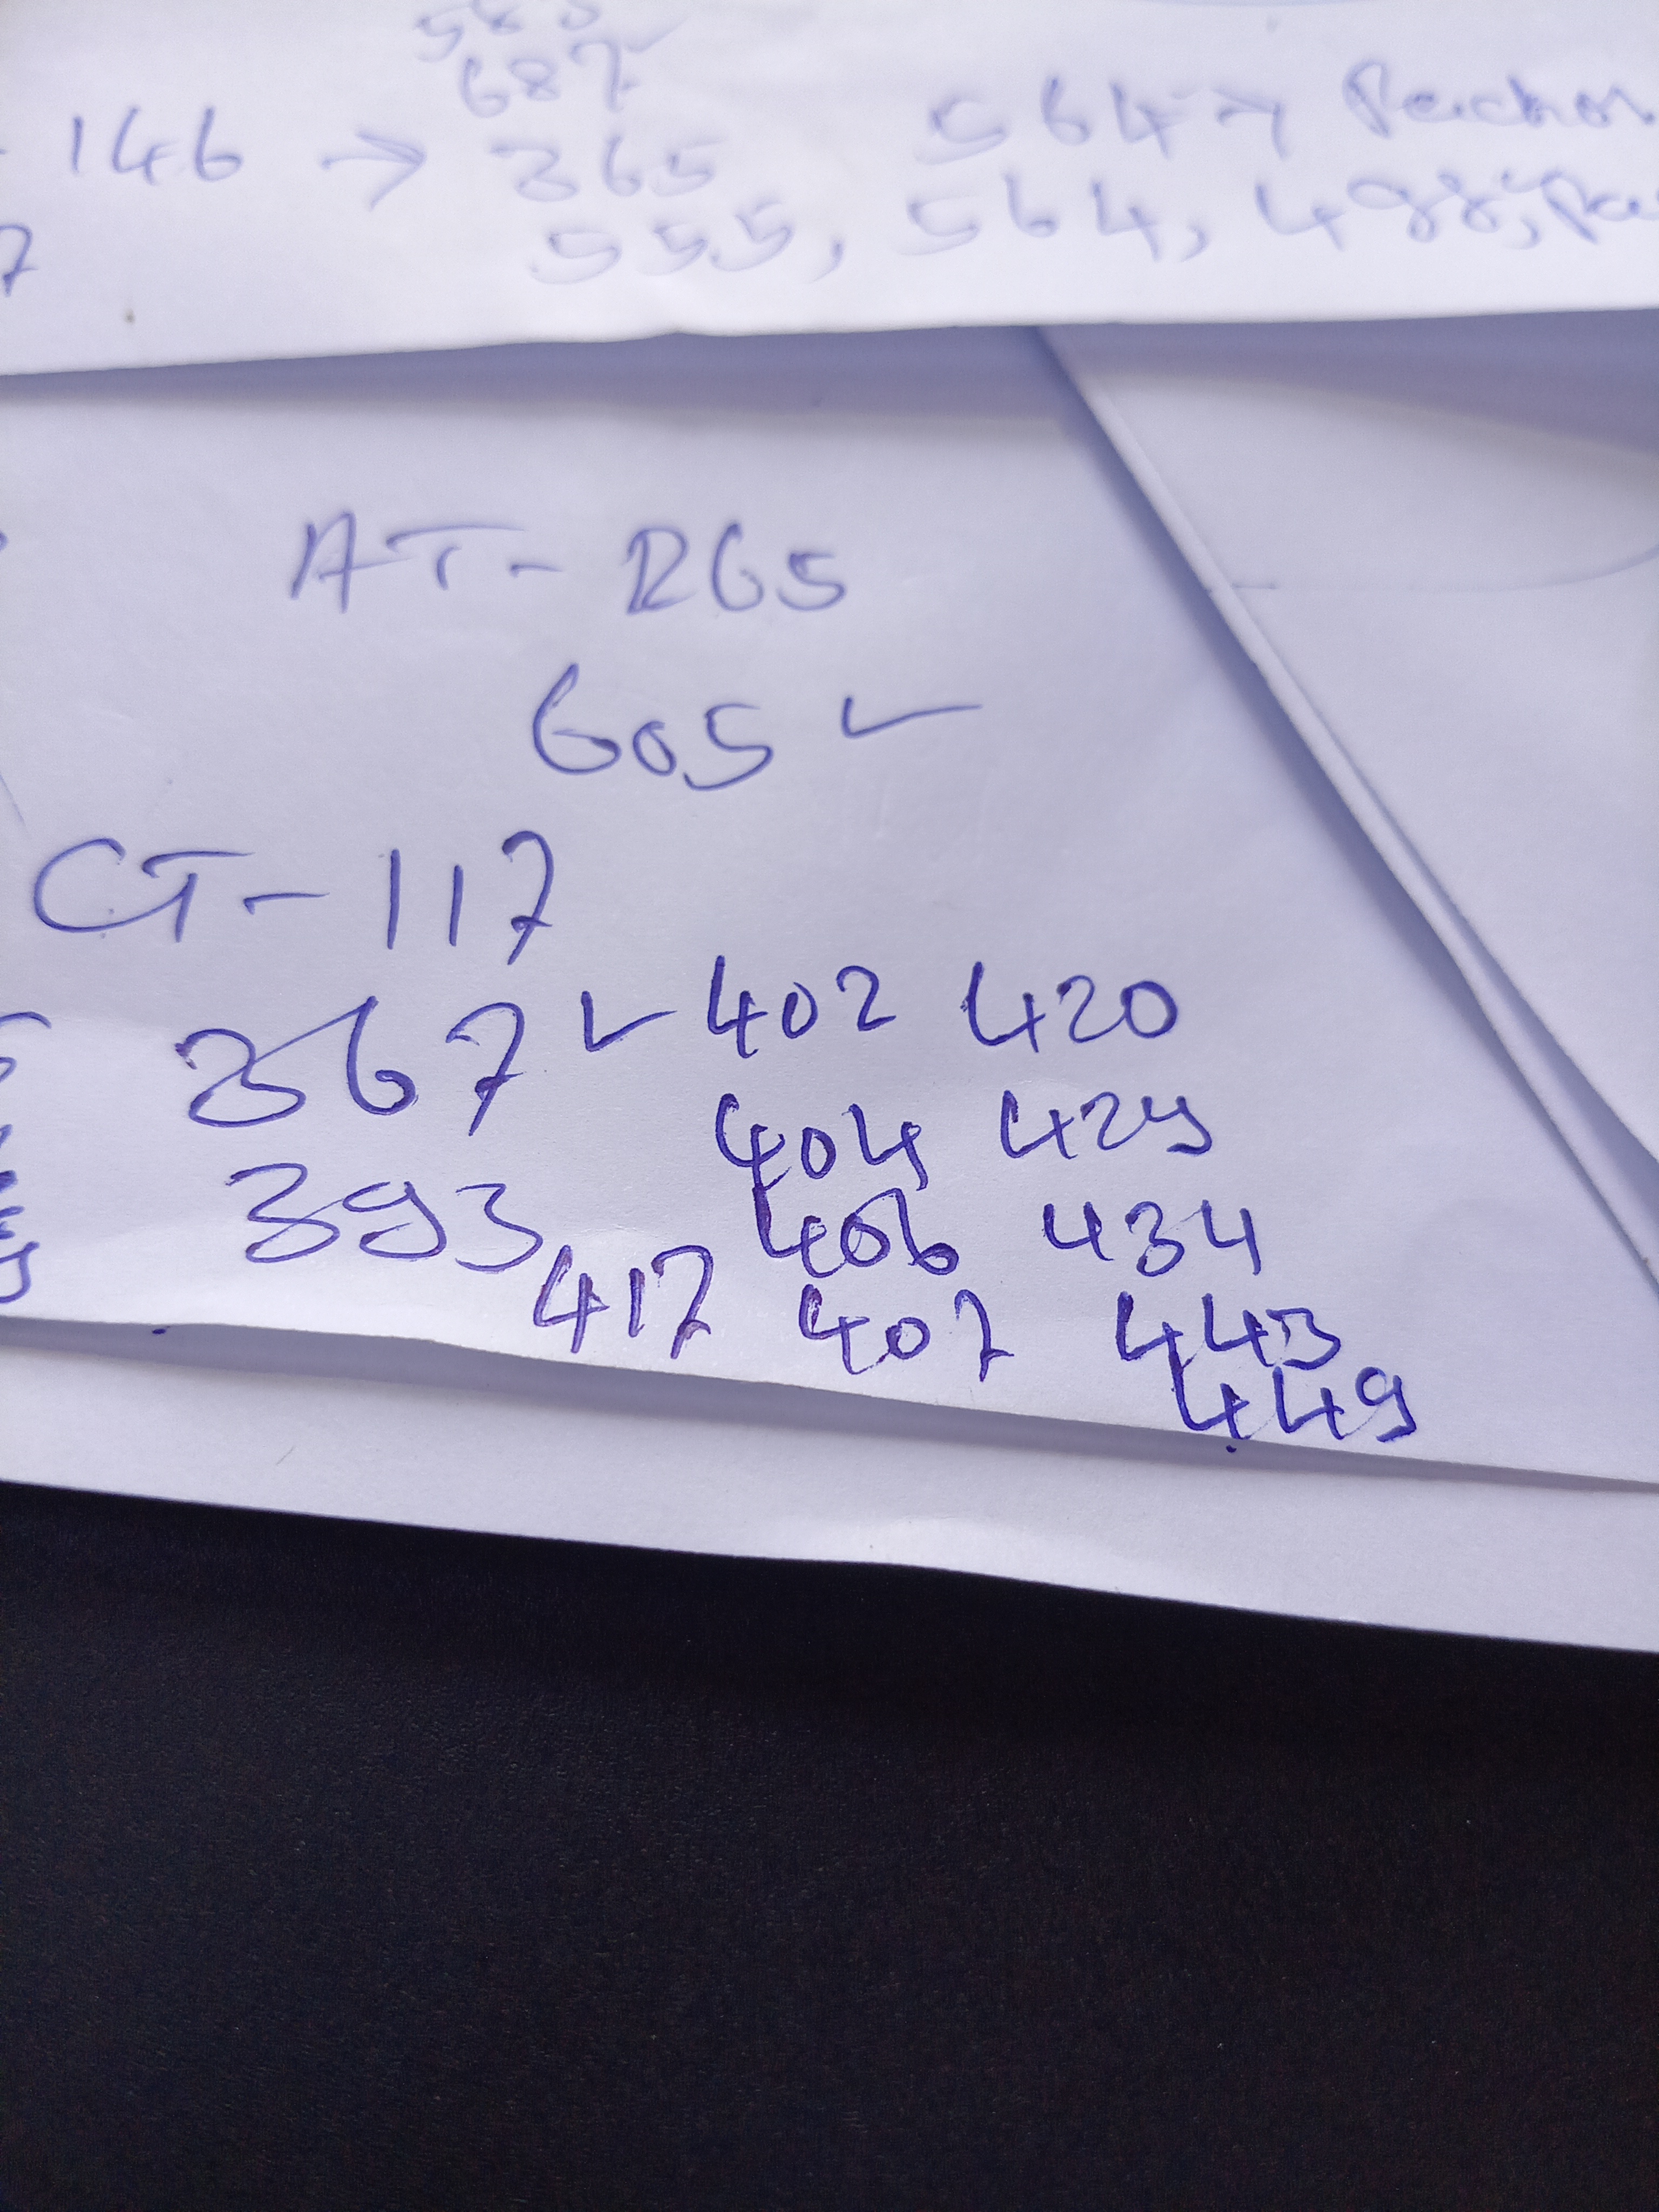 687
146 → 365
564 →
555, 564, 498,
7
AT - R65
605 ✓
CT - 117
367 ✓ 402 420
404 429
393 406 434
417 407 443
449